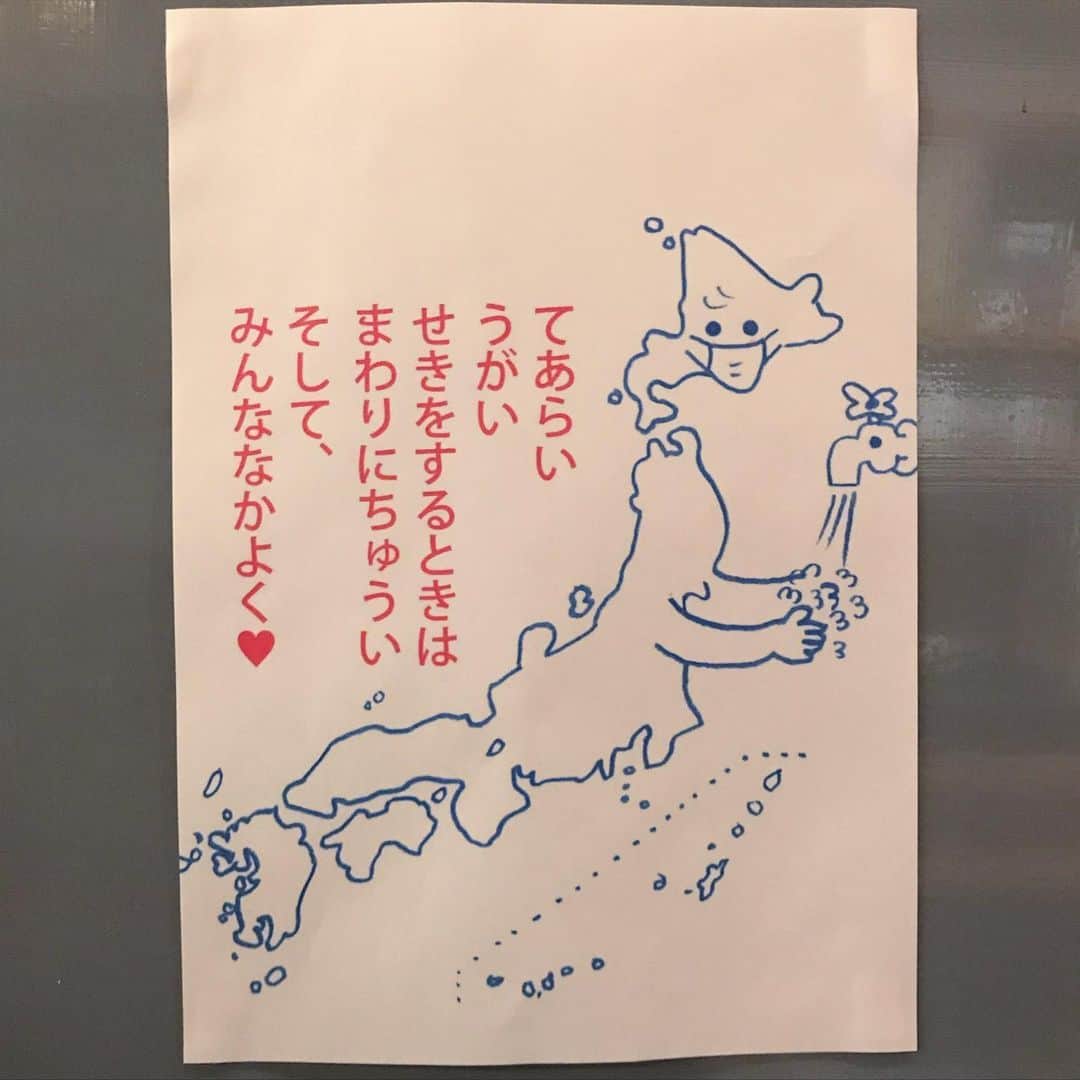 てあらい
うがい
せきをするときは
まわりにちゅうい
そして、
みんななかよく♥